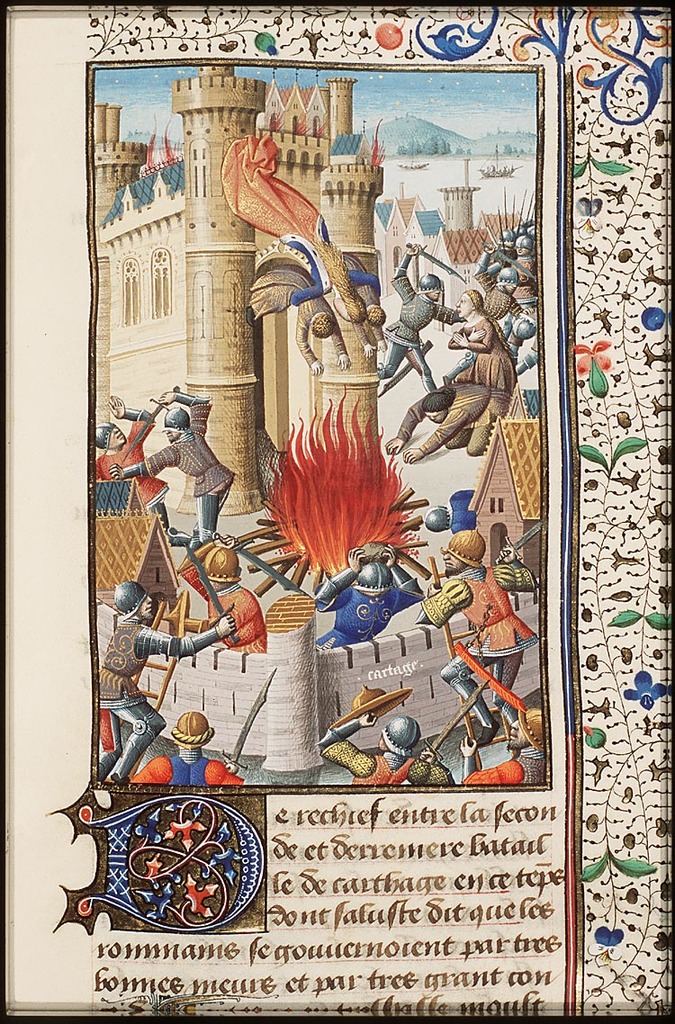 cartage
De rechief entre la secon
de et derreniere batail
le de carthage en ce teps
dont saluste dit que les
rommains se gouuernoient par tres
bonnes meurs et par tres grant con
moult